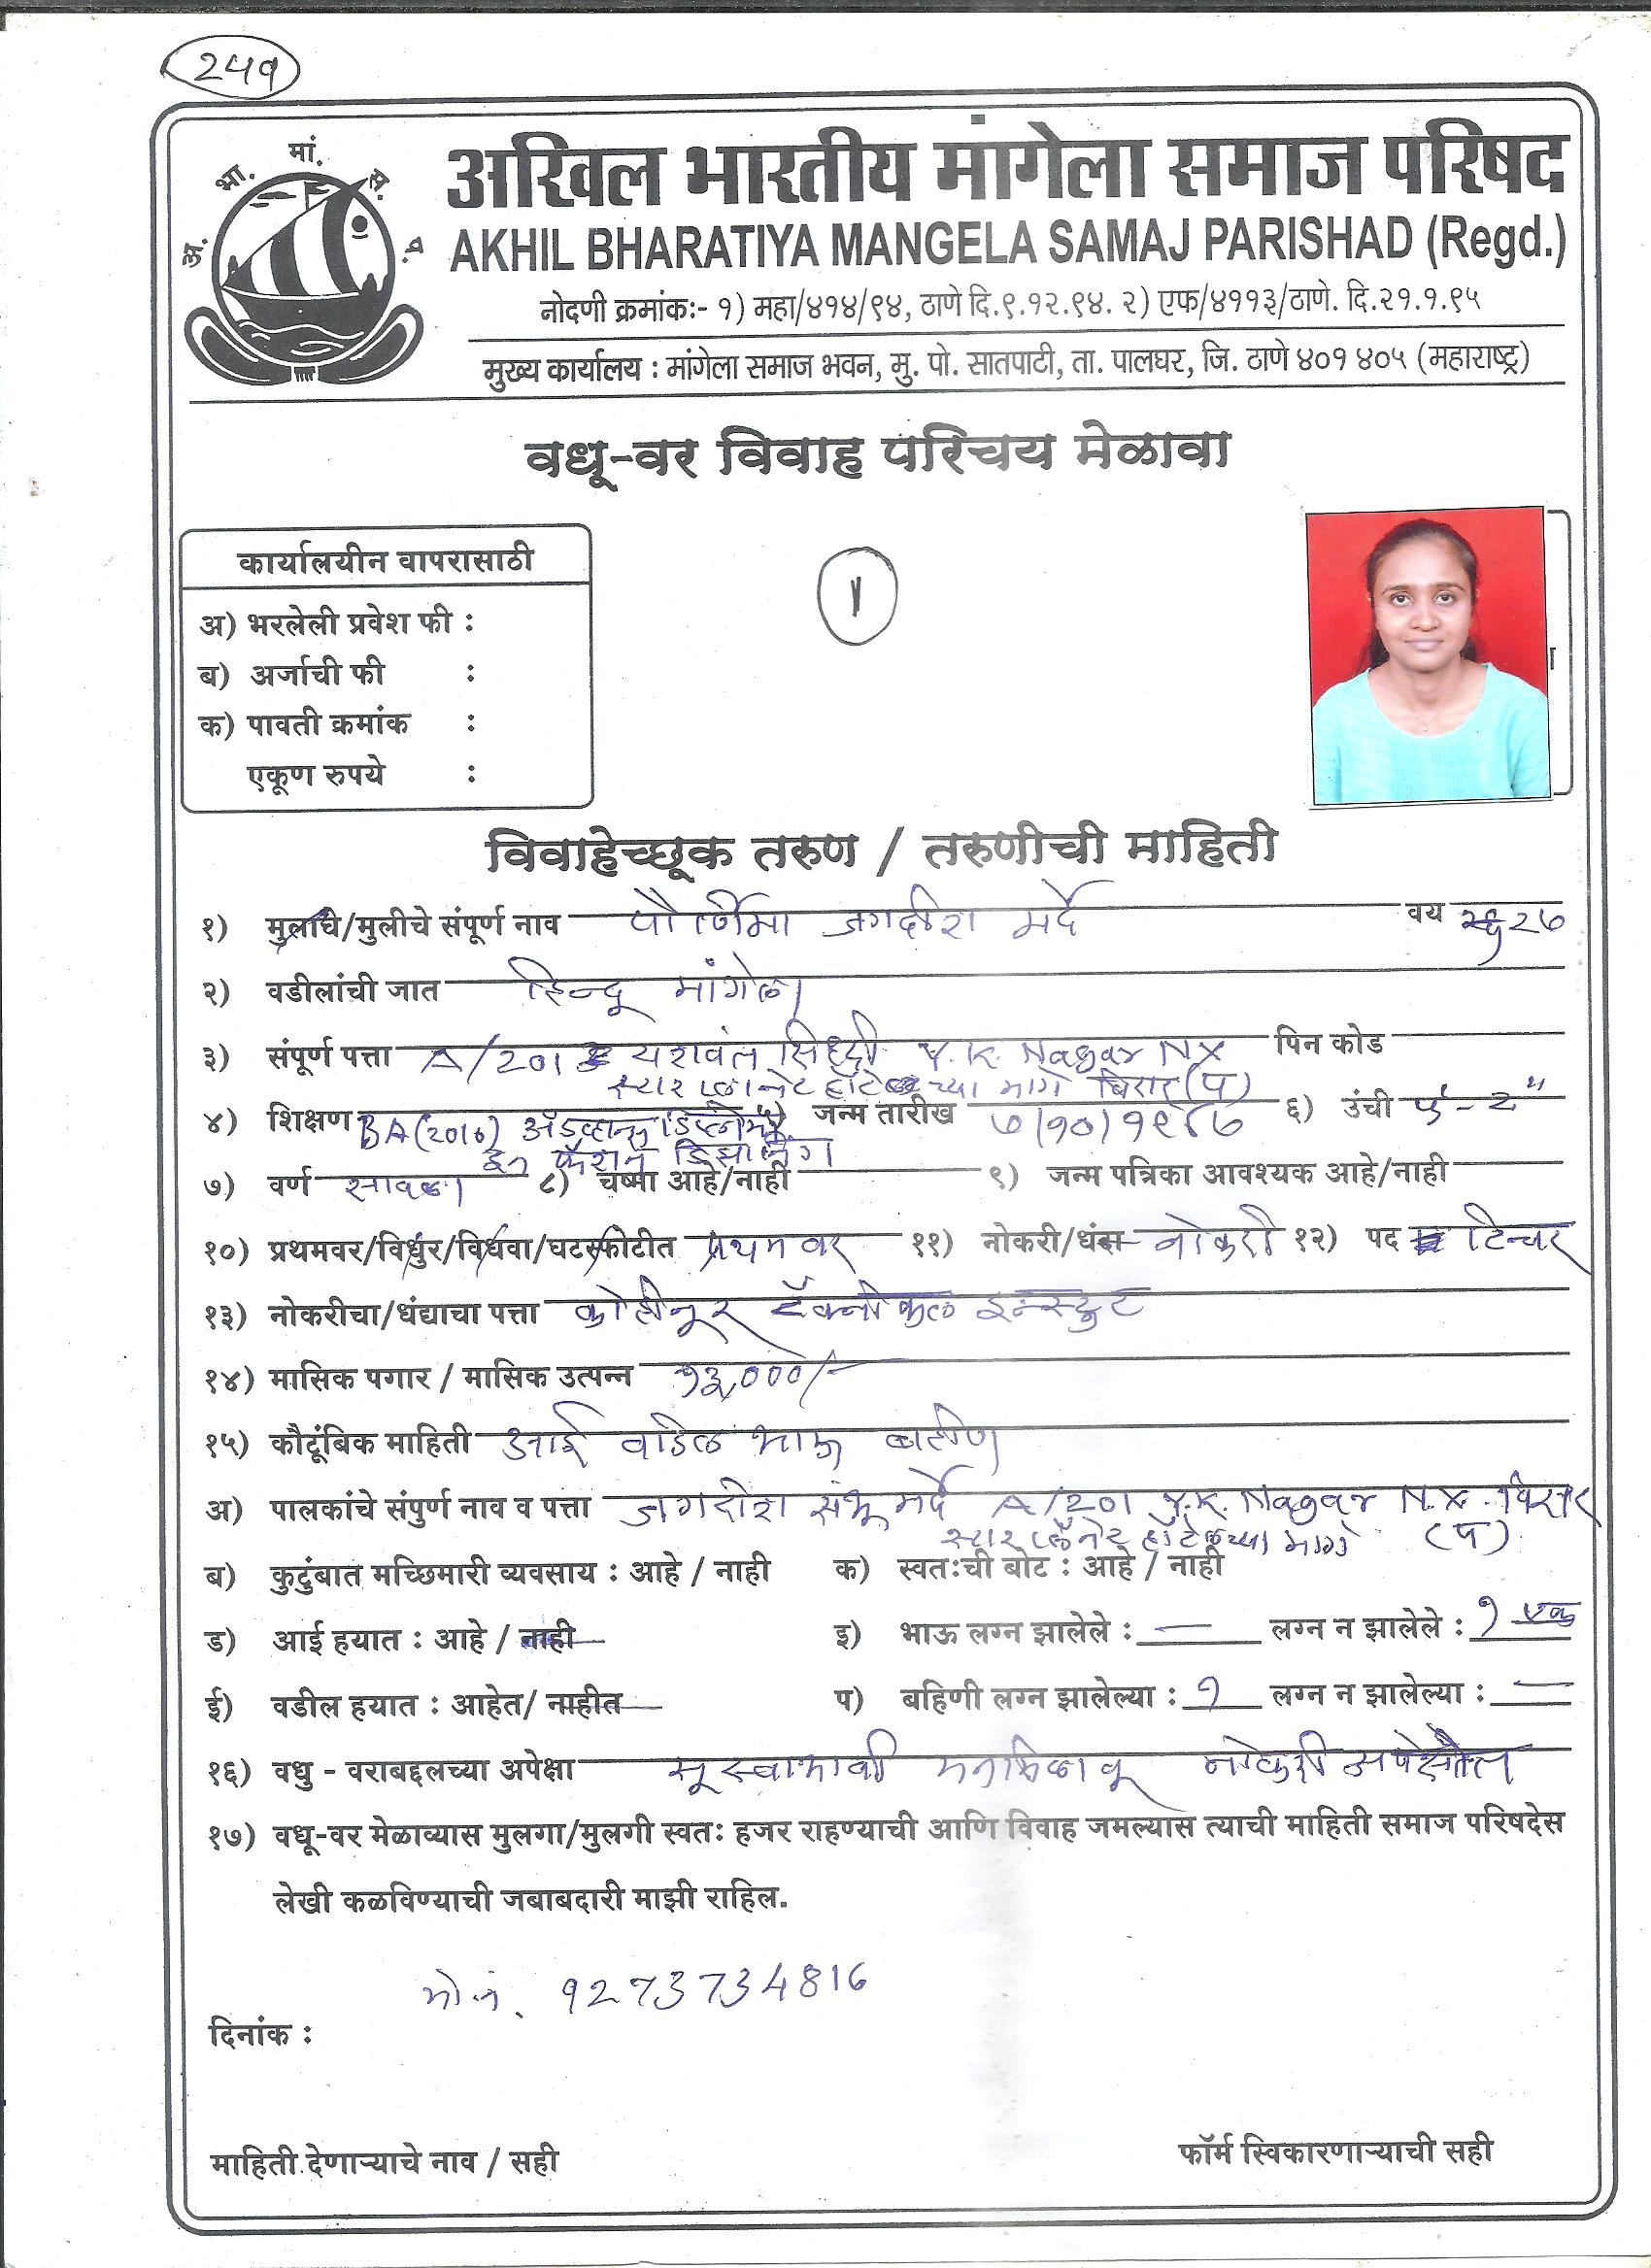 २५१
अ. भा. मां. स. प.
अखिल भारतीय मांगेला समाज परिषद
AKHIL BHARATIYA MANGELA SAMAJ PARISHAD (Regd.)
नोदणी क्रमांकः- १) महा/४१४/९४, ठाणे दि.९.१२.९४. २) एफ/४११३/ठाणे. दि.२१.१.९५
मुख्य कार्यालय : मांगेला समाज भवन, मु. पो. सातपाटी, ता. पालघर, जि. ठाणे ४०१ ४०५ (महाराष्ट्र)
वधू-वर विवाह परिचय मेळावा
कार्यालयीन वापरासाठी
१
अ) भरलेली प्रवेश फी :
ब) अर्जाची फी :
क) पावती क्रमांक :
एकूण रुपये :
विवाहेच्छूक तरुण / तरुणीची माहिती
१) मुलाचे/मुलीचे संपूर्ण नाव पौर्णिमा जगदीश मर्दे वय २७
२) वडीलांची जात हिन्दू मांगेला
३) संपूर्ण पत्ता A/201 यशवंत सिध्दी Y.K. Nagar NX पिन कोड
स्टार प्लानेट हॉटेलच्या मागे विरार (प)
४) शिक्षण BA (2010) अ‍ॅडव्हान्स डिप्लोमा ५) जन्म तारीख ७/१०/१९८७ ६) उंची ५'-२"
इन फॅशन डिझानिंग
७) वर्ण सावळा ८) चष्मा आहे/नाही ९) जन्म पत्रिका आवश्यक आहे/नाही
१०) प्रथमवर/विधुर/विधवा/घटस्फोटीत प्रथम वर ११) नोकरी/धंदा नोकरी १२) पद टिचर
१३) नोकरीचा/धंद्याचा पत्ता कोहीनूर टॅक्नीकल इन्स्टुट
१४) मासिक पगार / मासिक उत्पन्न १३,०००/-
१५) कौटूंबिक माहिती आई वडिल भाऊ बहीण
अ) पालकांचे संपुर्ण नाव व पत्ता जगदीश शंभू मर्दे A/201 Y.K. Nagar N.X. विरार
स्टार प्लॅनेट हॉटेलच्या मागे (प)
ब) कुटुंबात मच्छिमारी व्यवसाय : आहे / नाही क) स्वतःची बोट : आहे / नाही
ड) आई हयात : आहे / नाही इ) भाऊ लग्न झालेले : — लग्न न झालेले : १ एक
ई) वडील हयात : आहेत/ नाहीत प) बहिणी लग्न झालेल्या : १ लग्न न झालेल्या : —
१६) वधु - वराबद्दलच्या अपेक्षा सूस्वाभावी मनमिळावू नोकरी
१७) वधू-वर मेळाव्यास मुलगा/मुलगी स्वतः हजर राहण्याची आणि विवाह जमल्यास त्याची माहिती समाज परिषदेस
लेखी कळविण्याची जबाबदारी माझी राहिल.
मो नं. 9273734816
दिनांक :
माहिती देणाऱ्याचे नाव / सही फॉर्म स्विकारणाऱ्याची सही